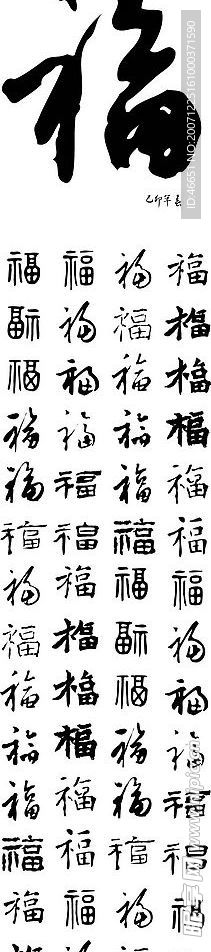 福
己卯年
福 福 福 福
福 福 福 福
福 福 福 福
福 福 福 福
福 福 福 福
福 福 福 福
福 福 福 福
福 福 福 福
福 福 福 福
福 福 福 福
福 福 福 福
福 福 福 福
福 福 福 福